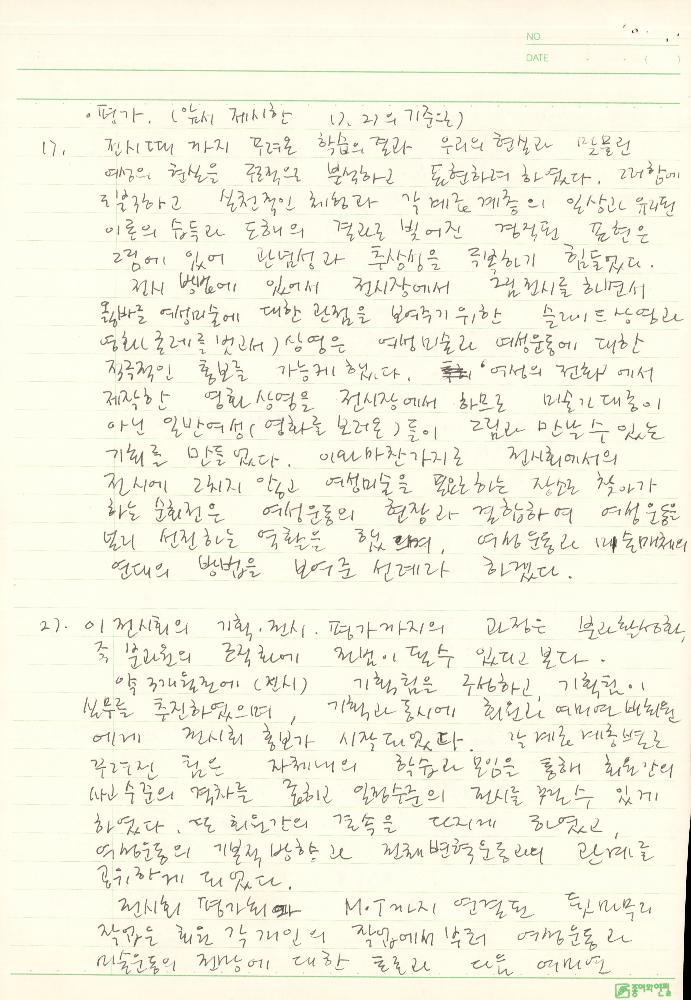 NO.
DATE . . ( )
· 평가. (앞서 제시한 1). 2)의 기준으로)
1). 전시때 까지 꾸려온 학습의 결과 우리의 현실과 맞물린
여성의 현실을 표적으로 분석하고 표현하려 하였다. 그러함에
불구하고 실천적인 체험과 각 계급 계층의 일상과 유리된
이론의 습득과 도해의 결과로 빚어진 경직된 표현은
그림에 있어 관념성과 추상성을 극복하기 힘들었다.
전시 방법에 있어서 전시장에서 그림전시를 하면서
올바른 여성미술에 대한 관점을 보여주기 위한 슬라이드 상영과
영화(굴레를 벗고서) 상영은 여성미술과 여성운동에 대한
적극적인 홍보를 가능케 했다. '여성의 전화'에서
제작한 영화 상영을 전시장에서 하므로 미술가 대중이
아닌 일반여성(영화를 보러온)들이 그림과 만날 수 있는
기회를 만들었다. 이와 마찬가지로 전시회에서의
전시에 그치지 않고 여성미술을 필요로하는 장소로 찾아가
하는 순회전은 여성운동의 현장과 결합하여 여성운동을
널리 선전하는 역할을 했으며, 여성운동과 미술매체의
연대의 방법을 보여준 선례라 하겠다.
2). 이 전시회의 기획. 전시. 평가까지의 과정은 분과활성화,
즉 분과원의 조직화에 전범이 될 수 있다고 본다.
약 3개월전에 (전시) 기획팀을 구성하고, 기획팀이
실무를 추진하였으며, 기획과 동시에 회원과 여미연 비회원
에게 전시회 홍보가 시작되었다. 각 계급 계층별로
꾸려진 팀은 자체내의 학습과 모임을 통해 회원간의
사고 수준의 격차를 좁히고 일정수준의 전시를 꾸릴 수 있게
하였다. 또 회원간의 결속을 다지게 하였고,
여성운동의 기본적 방향과 전체변혁운동과의 관계를
공유하게 되었다.
전시회 평가회와 M.T까지 연결된 뒷마무리
작업은 회원 각 개인의 작업에서부터 여성운동과
미술운동의 전망에 대한 토론과 다음 여미연
종이와연필